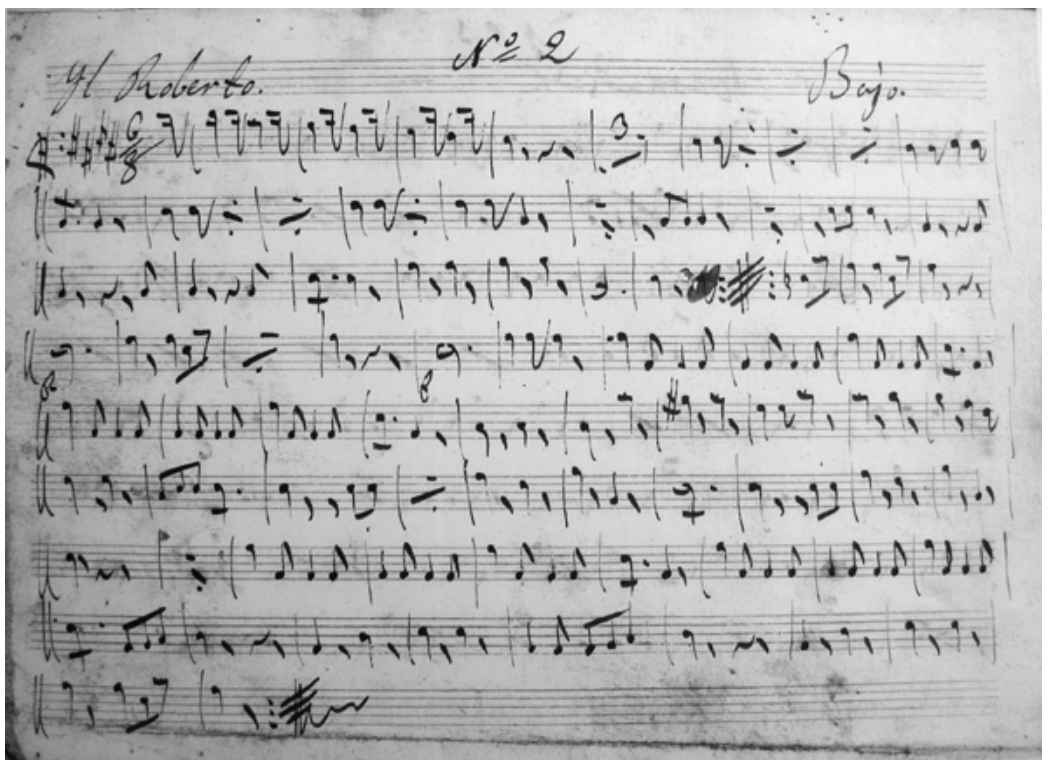 Nº 2
Yl Roberto. Bajo.
6
8
3